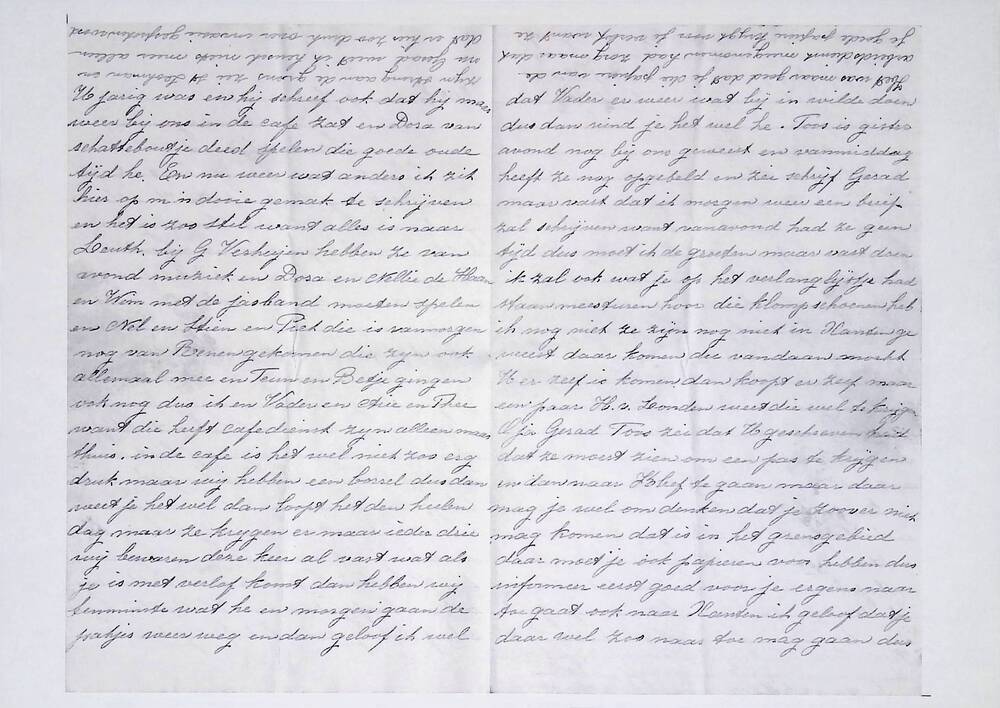 U jarig was en hij schreef ook dat hij maar
weer bij ons in de cafe zat en Dora van
schatteboutje deed spelen die goede oude
tijd he. En nu weer wat anders ik zit
hier op m'n dooie gemak te schrijven
en het is zoo stil want alles is naar
Leuth. bij G Verheijen hebben ze van
avond muziek en Dora en Nellie de Haan
en Wim met de jasband moeten spelen
en Nol en Stien en Piet die is vanmorgen
nog van Renen gekomen die zijn ook
allemaal mee en Teun en Betje gingen
ook nog dus ik en Vader en Arie en Thee
want die heeft cafedienst zijn alleen maar
thuis. in de cafe is het wel niet zoo erg
druk maar wij hebben een borrel dus dan
weet je het wel dan loopt het den heelen
dag maar ze krijgen er maar ieder drie
wij bewaren deze keer al vast wat als
je is met verlof komt dan hebben wij
tenminste wat he en morgen gaan de
pakjes weer weg en dan geloof ik wel
zijn aan de grens zei
en Gerad weet ik hoord niets meer alleen
dat er hier zoo druk over gesproken word
dat Vader er weer wat bij in wilde doen
dus dan vind je het wel he. Toos is gister
avond nog bij ons geweest en vanmiddag
heeft ze nog opgebeld en zei schrijf Gerad
maar vast dat ik morgen weer een brief
zal schrijven want vanavond had ze geen
tijd dus moet ik de groeten maar vast doen
ik zal ook wat je op het verlanglijstje had
staan meesturen hoor die klompschoenen heb
ik nog niet ze zijn nog niet in Xanten ge
weest daar komen die vandaan mocht
U er zelf is komen dan koopt er zelf maar
een paar H. v. Londen weet die wel te krijgen
O ja Gerad Toos zei dat U geschreven had
dat ze moest zien om een pas te krijgen
en dan naar Kleef te gaan maar daar
mag je wel om denken dat je zoover niet
mag komen dat is in het grensgebied
daar moet je ook papieren voor hebben dus
informeer eerst goed voor je ergens naar
toe gaat ook naar Xanten ik geloof dat je
daar wel zoo naar toe mag gaan dus
Het was maar goed dat je die papieren van de
arbeidsdienst meegenomen had zorg maar dat
je goede papieren krijgt voor je verlof want ze